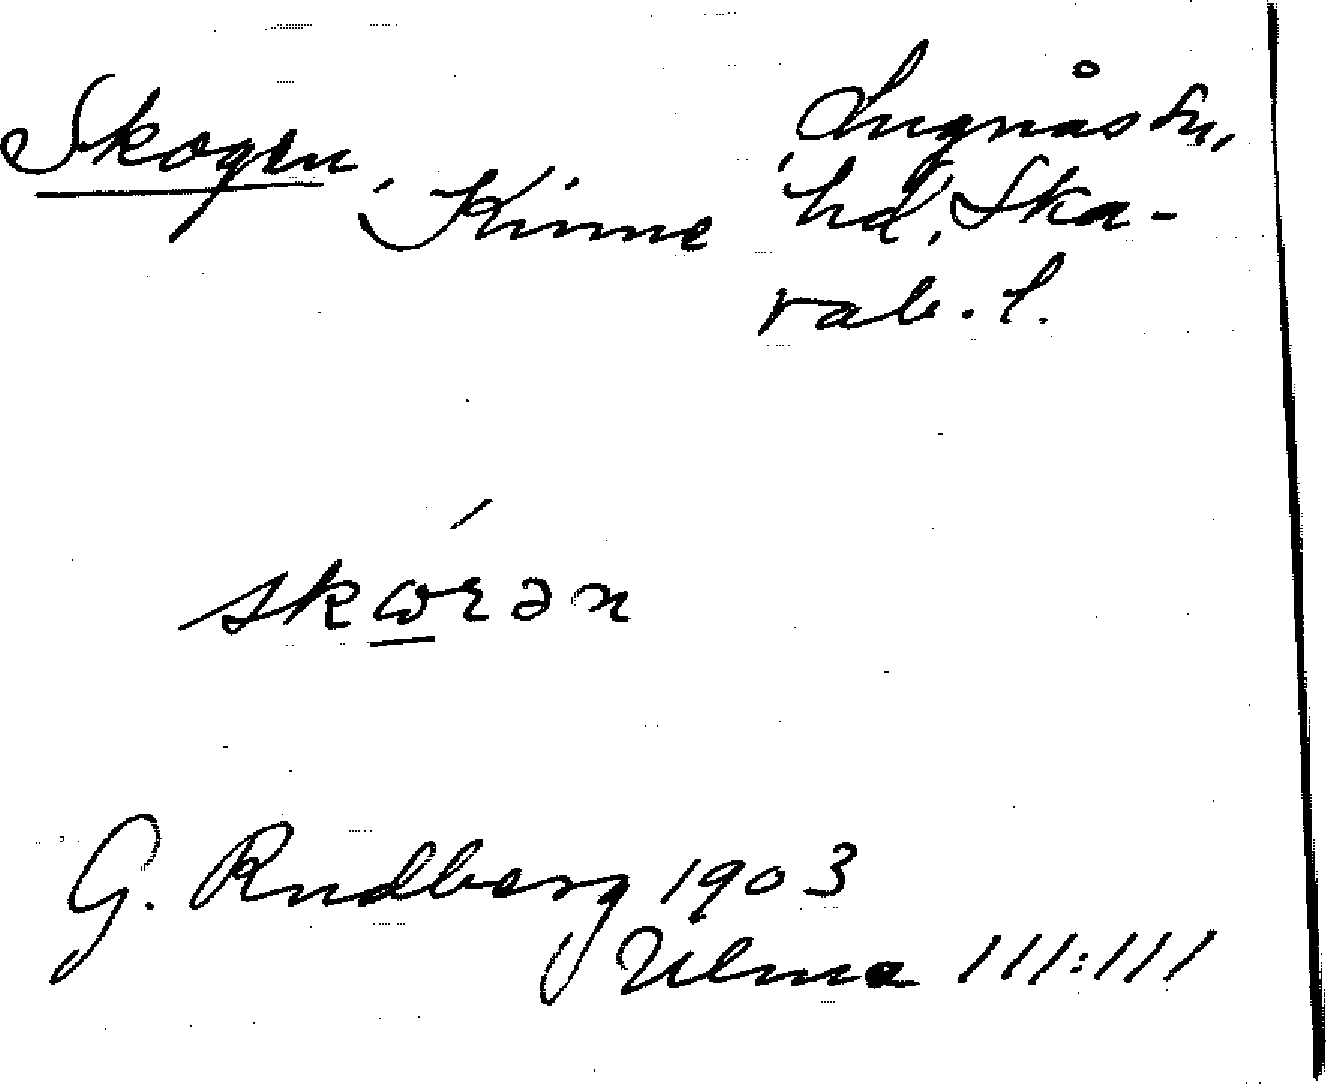 Skogen, Kinne
Lugnås sn,
hd, Ska-
rab. l.
skɷrən
G. Rudberg 1903
Ulma 111:111